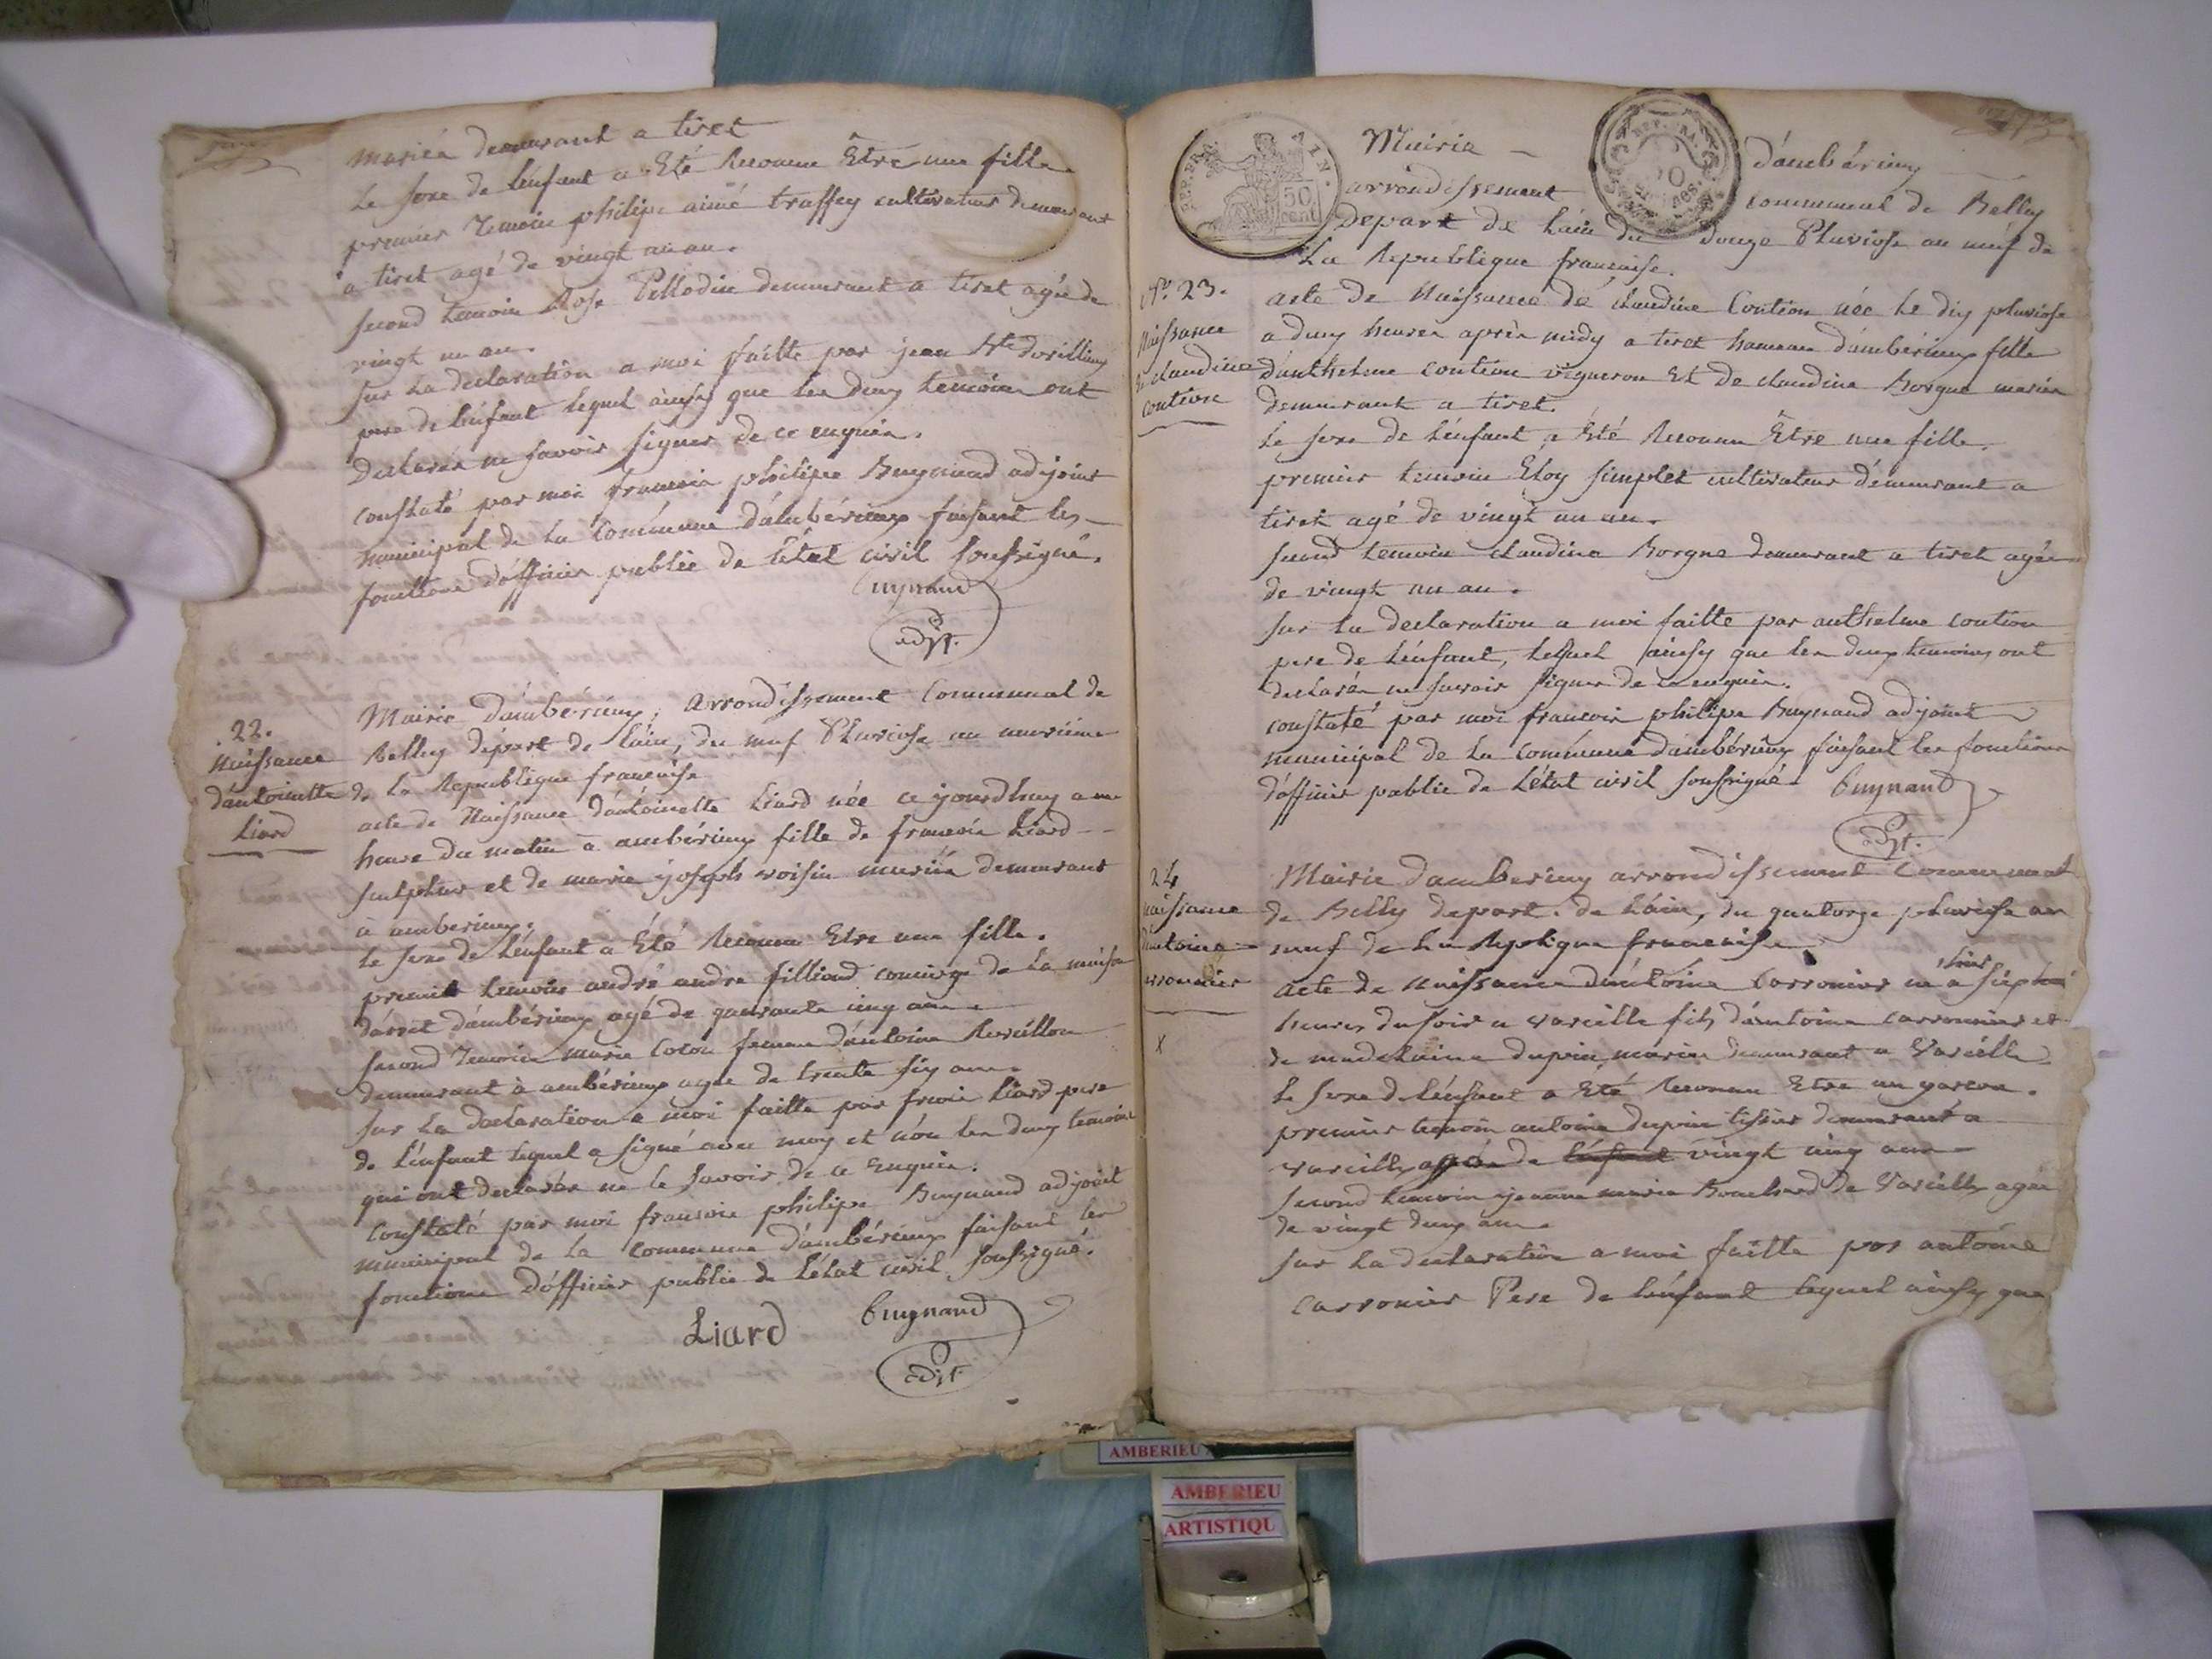 mariés demeurant a tiret
Le sexe de lénfant a Eté Reconnu Être une fille
premier temoin philipe aimé truffey cultivateur demeurant
a tiret agé de vingt un an.
second temoin Rose Pellodin demeurant a tiret agée de
vingt un an.
sur La declaration a moi faitte par jean
pere de lénfant lequel àinsy que les deux temoins ont
declarés ne savoir signer de ce enquis.
constaté par moi francois philipe Bugnand adjoint
municipal de La Commune dámbérieux faisant les
fonctions dófficier public de Létat civil soussigné.
Bugnand
adjt.
22.
Naissance
dántoinette
Liard
Mairie dámbérieux, arrondissement Communal de
Belley départ de Láin, du neuf Pluviose an neuvieme
de La Republique francaise
acte de Naissance dántoinette Liard née ce jourdhuy a une
heure du matin à ambérieux fille de francois Liard
sculpteur et de marie joseph voisin mariés demeurant
à amberieux,
Le sexe de Lénfant a Eté Reconnu Etre une fille.
premier temoin andré andre filliand concierge de La maison
dárret dámbérieux agé de quarante cinq ans
second Temoin marie Coton femme dántoine Revillon
demeurant à ambérieux agée de trente six ans
sur La declaration a moi faitte par frncois Liard pere
de Lénfant lequel a signé avec moy et nón les deux temoins
qui ont declarés ne le savoir de ce Enquis.
Constaté par moi francois philipe Bugnand adjoint
municipal de La Commune dámbérieux faisant les
fonctions Dófficier public de Létat civil soussigné.
Liard Bugnand
adjt.
REP. FRA. 50 cent
Mairie dámbérieux
arrondissement communal de Belley
Depart de Láin du douze Pluviose an neuf de
La Republique francaise.
No. 23.
Naissance
de claudine
contion
acte de Naissance de claudine Contion née Le dix pluviose
a deux heures après midy a tiret hameau dámberieux fille
dánthelme contion vigneron Et de claudine Borgne mariés
demeurant a tiret.
Le sexe de Lénfant a Eté Reconnu Être une fille.
premier temoin Eloy simplet cultivateur démeurant a
tiret agé de vingt un an.
second temoin claudine Borgne demeurant a tiret agée
de vingt un an.
sur La declaration a moi faitte par anthelme contion
pere de Lénfant, lequel àinsy que les deux temoins ont
declarés ne savoir signer de ce enquis.
constaté par moi francois philipe Bugnand adjoint
municipal de La commune dámbérieux faisant les fonctions
dófficier public de Létat civil soussigné.
Bugnand
adjt.
24
naissance
dantoine
carronier
x
Mairie dambérieux arrondissement Communal
de Belley depart. de Láin, du quatorze pluviose an
neuf de La Republique francaise
acte de naissance dántoine Carronier né a six
heures du soir a vareille fils dántoine carronier et
de madelaine dupin mariés demeurant a Varéille
Le sexe de Lénfant a Eté Reconnu Etre un garcon.
premier temoin antoine dupin tissier demeurant a
vareille agé de lénfant vingt cinq ans
second temoin jeanne marie Bouchard de Vareille agée
de vingt deux ans
sur La declaration a moi faitte par antoine
carronier Pere de Lénfant lequel ainsy que
AMBERIEU
AMBERIEU
ARTISTIQU